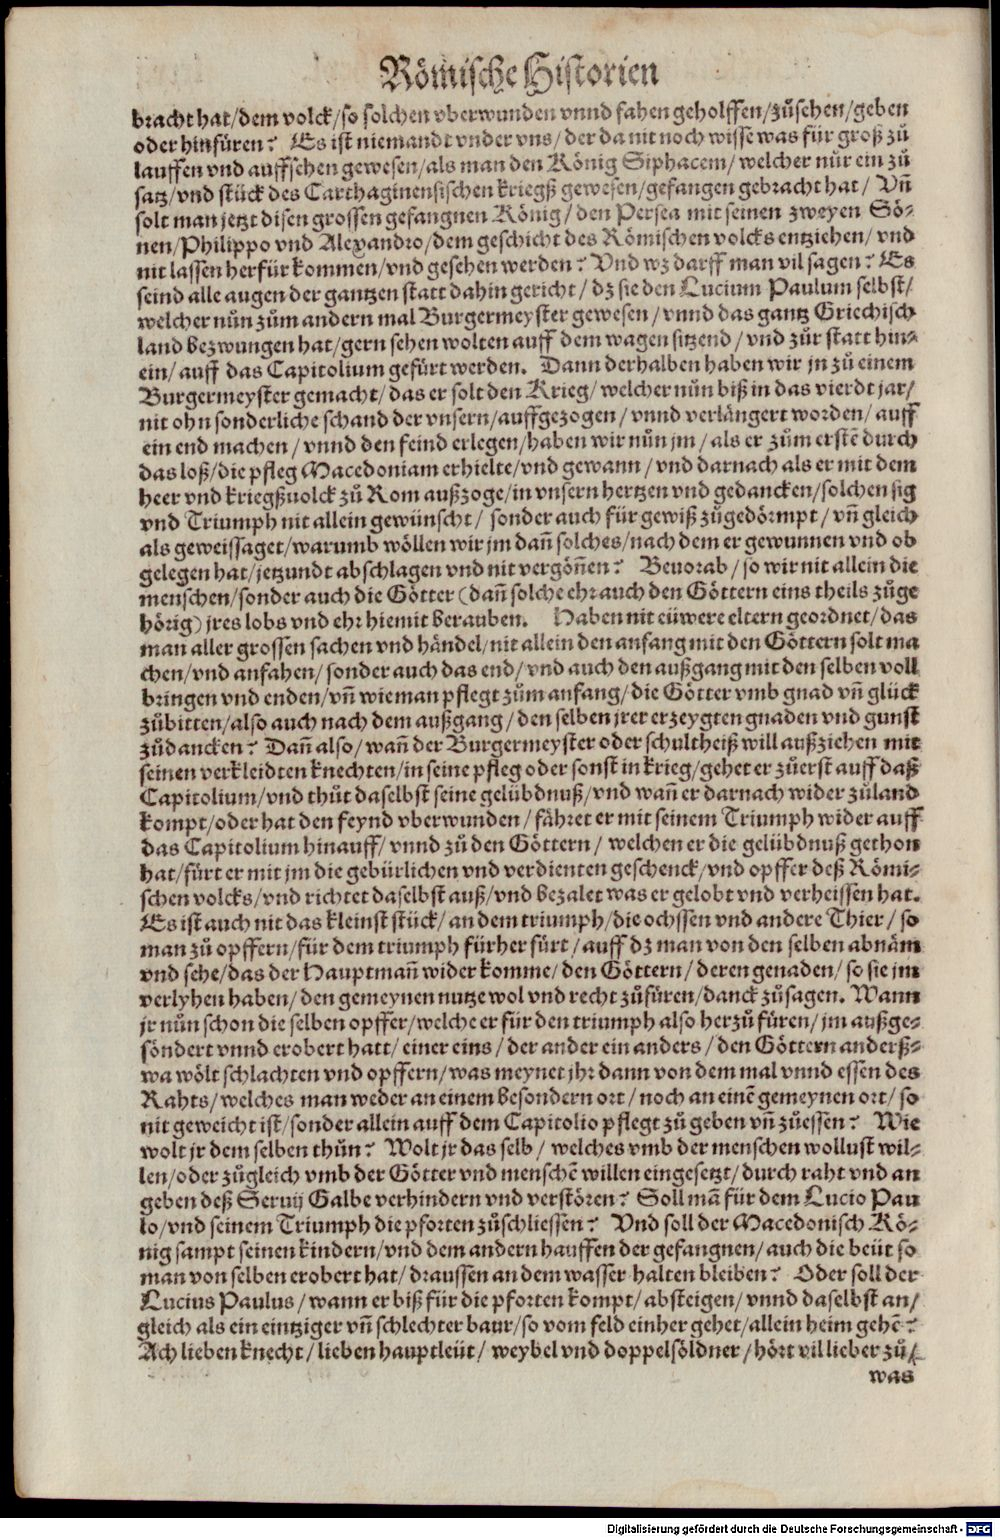 Römische Historien
bracht hat/dem volck/so solchen vberwunden vnnd fahen geholffen/zůsehen/geben
oder hinfüren? Es ist niemandt vnder vns/der da nit noch wisse was für groß zů
lauffen vnd auffsehen gewesen/als man den König Siphacem/welcher nůr ein zů
satz/vnd stück des Carthaginensischen kriegß gewesen/gefangen gebracht hat/ Vñ
solt man jetzt disen grossen gefangnen König/den Persea mit seinen zweyen Sö-
nen/Philippo vnd Alexandro/dem geschicht des Römischen volcks entziehen/vnd
nit lassen herfür kommen/vnd gesehen werden? Vnd wz darff man vil sagen? Es
seind alle augen der gantzen statt dahin gericht/dz sie den Lucium Paulum selbst/
welcher nůn zům andern mal Burgermeyster gewesen/vnnd das gantz Griechisch
land bezwungen hat/gern sehen wolten auff dem wagen sitzend/vnd zůr statt hin-
ein/auff das Capitolium gefürt werden. Dann derhalben haben wir jn zů einem
Burgermeyster gemacht/das er solt den Krieg/welcher nůn biß in das vierdt jar/
nit ohn sonderliche schand der vnsern/auffgezogen/vnnd verlängert worden/auff
ein end machen/vnnd den feind erlegen/haben wir nůn jm/als er zům erstē durch
das loß/die pfleg Macedoniam erhielte/vnd gewann/vnd darnach als er mit dem
heer vnd kriegßuolck zů Rom außzoge/in vnsern hertzen vnd gedancken/solchen sig
vnd Triumph nit allein gewünscht/sonder auch für gewiß zůgedörmpt/vñ gleich
als geweissaget/warumb wöllen wir jm dañ solches/nach dem er gewunnen vnd ob
gelegen hat/jetzundt abschlagen vnd nit vergöñen? Beuorab/so wir nit allein die
menschen/sonder auch die Götter (dañ solche ehr auch den Göttern eins theils zůge
hörig) jres lobs vnd ehr hiemit berauben. Haben nit eüwere eltern geordnet/das
man aller grossen sachen vnd händel/nit allein den anfang mit den Göttern solt ma
chen/vnd anfahen/sonder auch das end/vnd auch den außgang mit den selben voll
bringen vnd enden/vñ wie man pflegt zům anfang/die Götter vmb gnad vñ glück
zůbitten/also auch nach dem außgang/den selben jrer erzeygten gnaden vnd gunst
zůdancken? Dañ also/wañ der Burgermeyster oder schultheiß will außziehen mit
seinen verkleidten knechten/in seine pfleg oder sonst in krieg/gehet er zůerst auff daß
Capitolium/vnd thůt daselbst seine gelübdnuß/vnd wañ er darnach wider zůland
kompt/oder hat den feynd vberwunden/fähret er mit seinem Triumph wider auff
das Capitolium hinauff/vnnd zů den Göttern/welchen er die gelübdnuß gethon
hat/fürt er mit jm die gebürlichen vnd verdienten geschenck/vnd opffer deß Römi-
schen volcks/vnd richtet daselbst auß/vnd bezalet was er gelobt vnd verheissen hat.
Es ist auch nit das kleinst stück/an dem triumph/die ochssen vnd andere Thier/so
man zů opffern/für dem triumph fürher fürt/auff dz man von den selben abnäm
vnd sehe/das der Hauptmañ wider komme/den Göttern/deren genaden/so sie jm
verlyhen haben/den gemeynen nutze wol vnd recht zůfüren/danck zůsagen. Wann
jr nůn schon die selben opffer/welche er für den triumph also herzů füren/jm außge-
söndert vnnd erobert hatt/einer eins/der ander ein anders/den Göttern anderß-
wa wölt schlachten vnd opffern/was meynet jhr dann von dem mal vnnd essen des
Rahts/welches man weder an einem besondern ort/noch an einē gemeynen ort/so
nit geweicht ist/sonder allein auff dem Capitolio pflegt zů geben vñ zůessen? Wie
wolt jr dem selben thůn? Wolt jr das selb/welches vmb der menschen wollust wil-
len/oder zůgleich vmb der Götter vnd menschē willen eingesetzt/durch raht vnd an
geben deß Seruij Galbe verhindern vnd verstören? Soll mã für dem Lucio Pau
lo/vnd seinem Triumph die pforten zůschliessen? Vnd soll der Macedonisch Kö-
nig sampt seinen kindern/vnd dem andern hauffen der gefangnen/auch die beüt so
man von selben erobert hat/draussen an dem wasser halten bleiben? Oder soll der
Lucius Paulus/wann er biß für die pforten kompt/absteigen/vnnd daselbst an/
gleich als ein eintziger vñ schlechter baur/so vom feld einher gehet/allein heim gehē?
Ach lieben knecht/lieben hauptleüt/weybel vnd doppelsöldner/hört vil lieber zů/
was
Digitalisierung gefördert durch die Deutsche Forschungsgemeinschaft - DFG